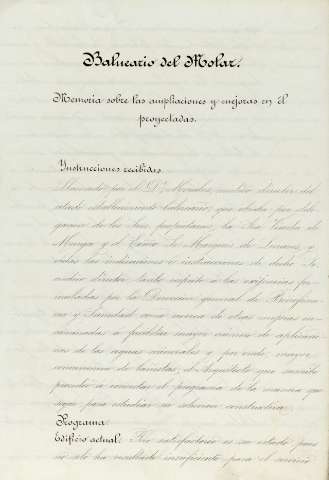 Balneario del Molar.
Memoria sobre las ampliaciones y mejoras en él
proyectadas.
Instrucciones recibidas
Llamado por el Dr. Morales, médico director del
actual establecimiento balneario, que obraba por dele
gación de los Sres propietarios, la Sra Viuda de
Murga y el Excmo Sr. Marqués de Linares, y
oidas las indicaciones é instrucciones de dicho Sr.
médico director, tanto respecto á las exigencias for
muladas por la Dirección general de Beneficen
cia y Sanidad como acerca de otras mejoras en
caminadas á facilitar mayor número de aplicacio
nes de las aguas minerales y por ende, mayor
concurrencia de bañistas, el Arquitecto que suscribe
procedió á concretar el programa de la manera que
sigue para estudiar su solución constructiva.
Programa.
Edificio actual. No satisfactorio es su estado pues
no solo ha resultado insuficiente para el servicio